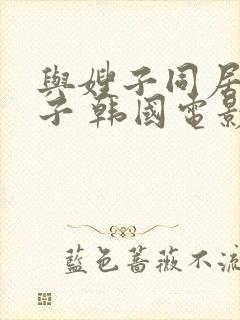 與嫂子同居
子 韩國電影
藍色薔薇不流